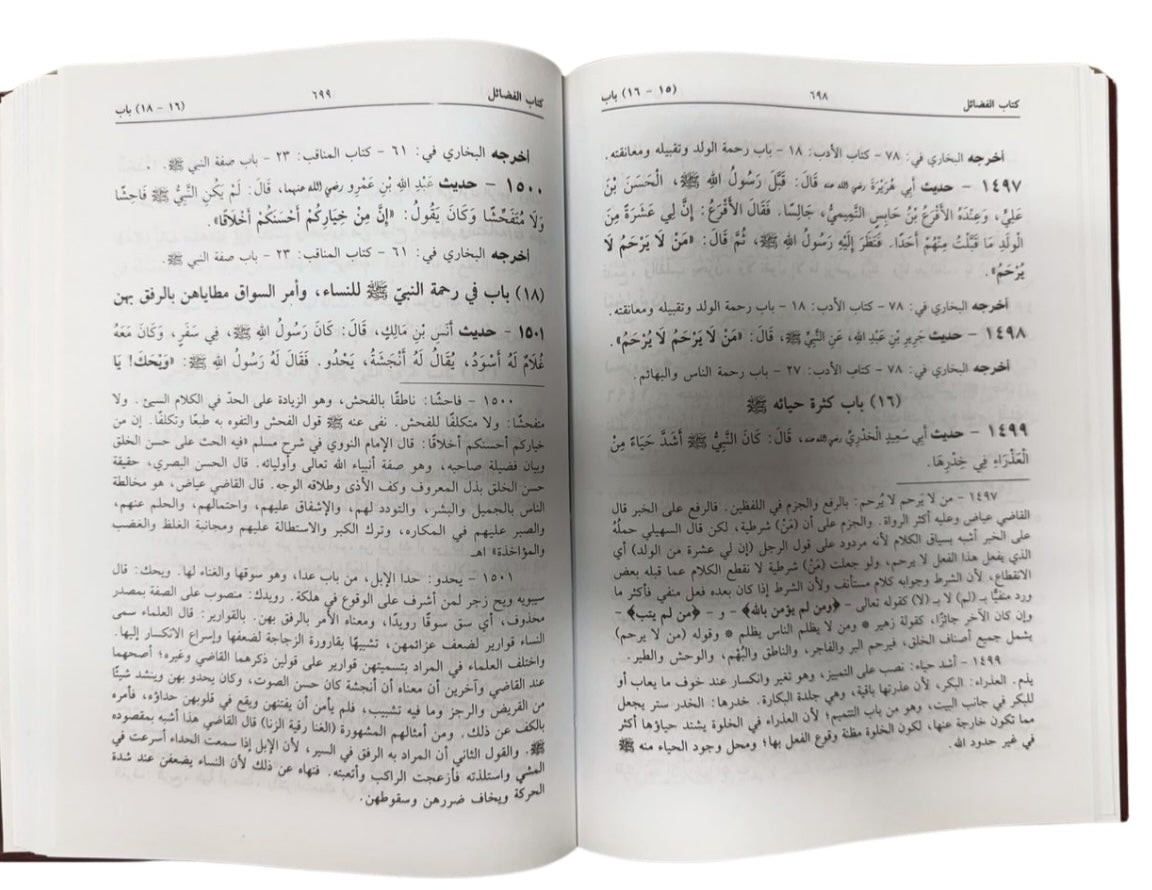 كتاب الفضائل ٦٩٨ (١٥ - ١٦) باب
أخرجه البخاري في: ٧٨ - كتاب الأدب: ١٨ - باب رحمة الولد وتقبيله ومعانقته.
١٤٩٧ - حديث أَبِي هُرَيْرَةَ رضي الله عنه قَالَ: قَبَّلَ رَسُولُ اللهِ ﷺ، الْحَسَنَ بْنَ
عَلِيٍّ، وَعِنْدَهُ الأَقْرَعُ بْنُ حَابِسٍ التَّمِيمِيُّ، جَالِسًا. فَقَالَ الأَقْرَعُ: إِنَّ لِي عَشَرَةً مِنَ
الْوَلَدِ مَا قَبَّلْتُ مِنْهُمْ أَحَدًا. فَنَظَرَ إِلَيْهِ رَسُولُ اللهِ ﷺ، ثُمَّ قَالَ: «مَنْ لَا يَرْحَمُ لَا
يُرْحَمُ».
أخرجه البخاري في: ٧٨ - كتاب الأدب: ١٨ - باب رحمة الولد وتقبيله ومعانقته.
١٤٩٨ - حديث جَرِيرِ بْنِ عَبْدِ اللهِ، عَنِ النَّبِيِّ ﷺ، قَالَ: «مَنْ لَا يَرْحَمُ لَا يُرْحَمُ».
أخرجه البخاري في: ٧٨ - كتاب الأدب: ٢٧ - باب رحمة الناس والبهائم.
(١٦) باب كثرة حيائه ﷺ
١٤٩٩ - حديث أَبِي سَعِيدٍ الْخُدْرِيِّ رضي الله عنه، قَالَ: كَانَ النَّبِيُّ ﷺ أَشَدَّ حَيَاءً مِنَ
الْعَذْرَاءِ فِي خِدْرِهَا.
١٤٩٧ - من لا يَرحم لا يُرحم: بالرفع والجزم في اللفظين. فالرفع على الخبر قال
القاضي عياض وعليه أكثر الرواة. والجزم على أن (مَنْ) شرطية، لكن قال السهيلي حملُهُ
على الخبر أشبه بسياق الكلام لأنه مردود على قول الرجل (إن لي عشرة من الولد) أي
الذي يفعل هذا الفعل لا يرحم، ولو جعلت (مَنْ) شرطية لا نقطع الكلام عما قبله بعض
الانقطاع، لأن الشرط وجوابه كلام مستأنف ولأن الشرط إذا كان بعده فعل منفي فأكثر ما
ورد منفيًّا بـ (لم) لا بـ (لا) كقوله تعالى - ﴿ومن لم يؤمن بالله﴾ - و - ﴿من لم يتب﴾ -
وإن كان الآخر جائزًا، كقولة زهير * ومن لا يظلم الناس يظلم * وقوله (من لا يرحم)
يشمل جميع أصناف الخلق، فيرحم البر والفاجر، والناطق والبُهْم، والوحش والطير.
١٤٩٩ - أشد حياء: نصب على التمييز، وهو تغير وانكسار عند خوف ما يعاب أو
يذم. العذراء: البكر، لأن عذرتها باقية، وهي جلدة البكارة. خدرها: الخدر ستر يجعل
للبكر في جانب البيت، وهو من باب التتميم؛ لأن العذراء في الخلوة يشتد حياؤها أكثر
مما تكون خارجة عنها، لكون الخلوة مظنة وقوع الفعل بها؛ ومحل وجود الحياء منه ﷺ
في غير حدود الله.
كتاب الفضائل ٦٩٩ (١٦ - ١٨) باب
أخرجه البخاري في: ٦١ - كتاب المناقب: ٢٣ - باب صفة النبي ﷺ.
١٥٠٠ - حديث عَبْدِ اللهِ بْنِ عَمْرٍو رضي الله عنهما، قَالَ: لَمْ يَكُنِ النَّبِيُّ ﷺ فَاحِشًا
وَلَا مُتَفَحِّشًا وَكَانَ يَقُولُ: «إِنَّ مِنْ خِيَارِكُمْ أَحْسَنَكُمْ أَخْلَاقًا».
أخرجه البخاري في: ٦١ - كتاب المناقب: ٢٣ - باب صفة النبي ﷺ.
(١٨) باب في رحمة النبيّ ﷺ للنساء، وأمر السواق مطاياهن بالرفق بهن
١٥٠١ - حديث أَنَسِ بْنِ مَالِكٍ، قَالَ: كَانَ رَسُولُ اللهِ ﷺ، فِي سَفَرٍ، وَكَانَ مَعَهُ
غُلَامٌ لَهُ أَسْوَدُ، يُقَالُ لَهُ أَنْجَشَةُ، يَحْدُو. فَقَالَ لَهُ رَسُولُ اللهِ ﷺ: «وَيْحَكَ! يَا
١٥٠٠ - فاحشًا: ناطقًا بالفحش، وهو الزيادة على الحدّ في الكلام السيئ. ولا
متفحشًا: ولا متكلفًا للفحش. نفى عنه ﷺ قول الفحش والتفوه به طبعًا وتكلفًا. إن من
خياركم أحسنكم أخلاقًا: قال الإمام النووي في شرح مسلم «فيه الحث على حسن الخلق
وبيان فضيلة صاحبه، وهو صفة أنبياء الله تعالى وأوليائه. قال الحسن البصري، حقيقة
حسن الخلق بذل المعروف وكف الأذى وطلاقه الوجه. قال القاضي عياض، هو مخالطة
الناس بالجميل والبشر، والتودد لهم، والإشفاق عليهم، واحتمالهم، والحلم عنهم،
والصبر عليهم في المكاره، وترك الكبر والاستطالة عليهم ومجانبة الغلظ والغضب
والمؤاخذة» اهـ
١٥٠١ - يحدو: حدا الإبل، من باب عدا، وهو سوقها والغناء لها. ويحك: قال
سيبويه ويح زجر لمن أشرف على الوقوع في هلكة. رويدك: منصوب على الصفة بمصدر
محذوف، أي سق سوقًا رويدًا، ومعناه الأمر بالرفق بهن. بالقوارير: قال العلماء سمى
النساء قوارير لضعف عزائمهن، تشبيهًا بقارورة الزجاجة لضعفها وإسراع الانكسار إليها.
واختلف العلماء في المراد بتسميتهن قوارير على قولين ذكرهما القاضي وغيره؛ أصحهما
عند القاضي وآخرين أن معناه أن أنجشة كان حسن الصوت، وكان يحدو بهن وينشد شيئًا
من القريض والرجز وما فيه تشبيب، فلم يأمن أن يفتنهن ويقع في قلوبهن حداؤه، فأمره
بالكف عن ذلك. ومن أمثالهم المشهورة (الغنا رقية الزنا) قال القاضي هذا أشبه بمقصوده
ﷺ. والقول الثاني أن المراد به الرفق في السير، لأن الإبل إذا سمعت الحداء أسرعت في
المشي واستلذته فأزعجت الراكب وأتعبته. فنهاه عن ذلك لأن النساء يضعفن عند شدة
الحركة ويخاف ضررهن وسقوطهن.